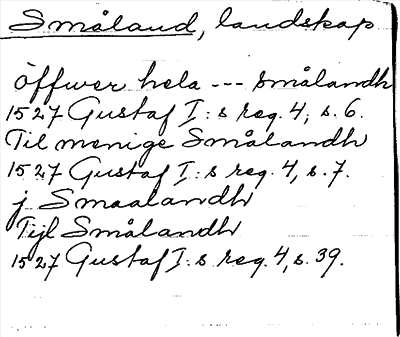 Småland, landskap
öffwer hela --- Smålandh
1527 Gustaf I:s reg. 4, s. 6.
Til menige Smålandh
1527 Gustaf I:s reg. 4, s. 7.
j Smaalandh
Tijl Smålandh
1527 Gustaf I:s reg. 4, s. 39.